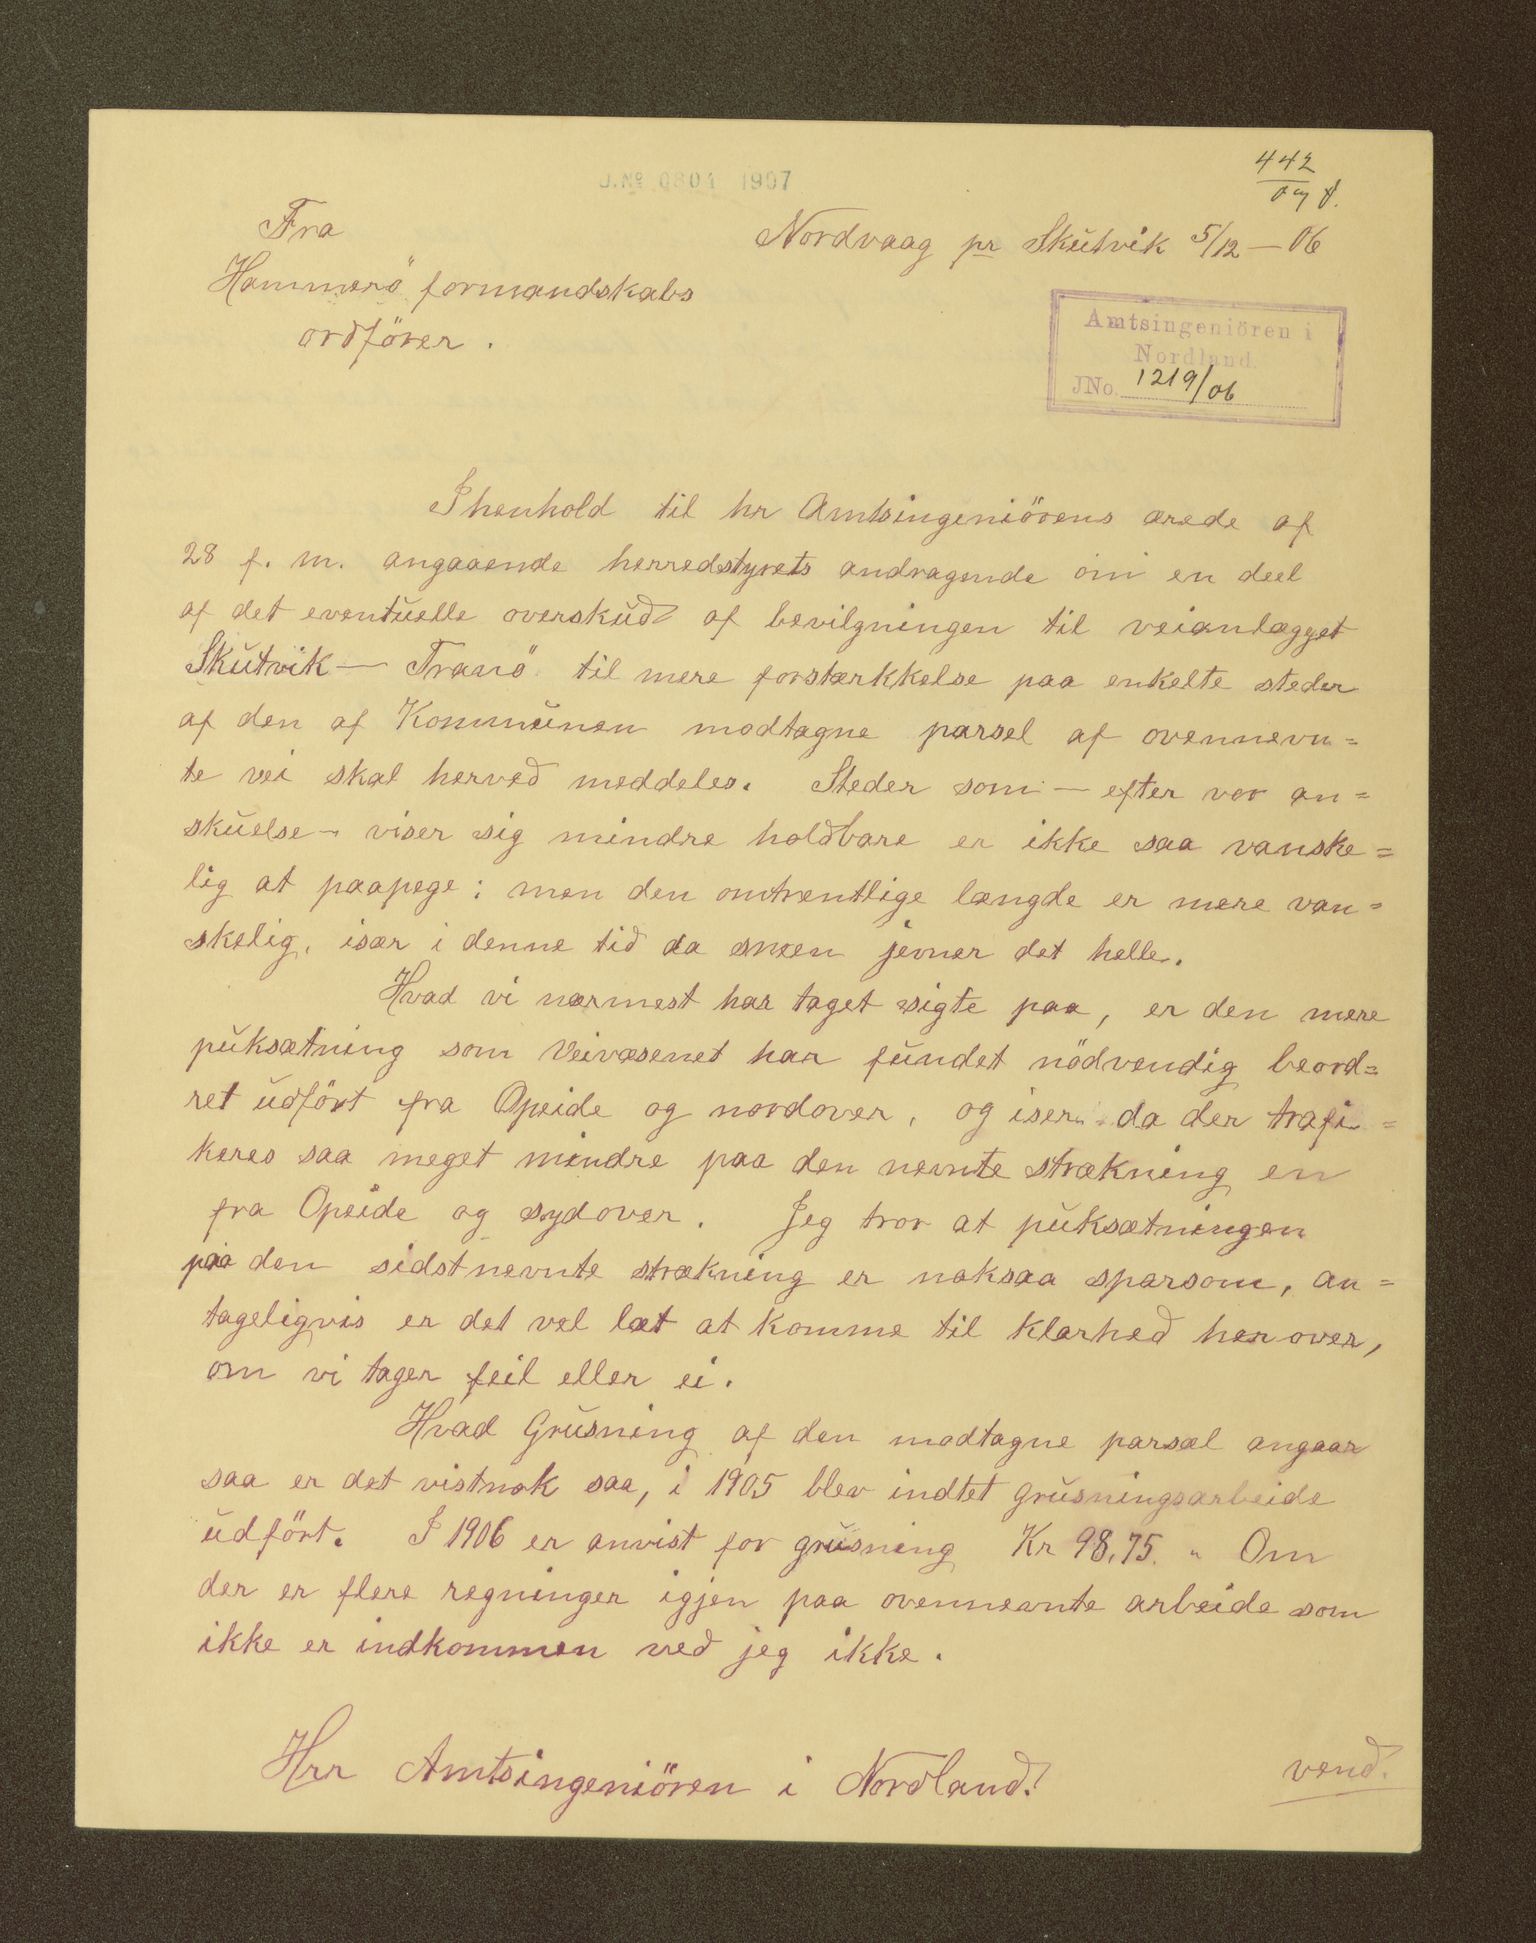 J.No 0804 1907
442
Fra
Nordvaag pr Skutvik 5/12 — 06
Hammerö formandskabs
ordförer.
Amtsingeniören i
Nordland.
JNo. 1219/06
I henhold til hr Amtsingeniörens ærede af
28 f. m. angaaende herredstyrets andragende om en deel
af det eventuelle overskud af bevilgningen til veianlægget
Skutvik — Tranö til mere forstærkkelse paa enkelte steder
af den af Kommunen modtagne parsel af ovennevn=
te vei skal herved meddeles. Steder som — efter vor an=
skuelse — viser sig mindre holdbare er ikke saa vanske=
lig at paapege: men den omtrentlige længde er mere van=
skelig, især i denne tid da sneen jevner det helle.
Hvad vi nærmest har taget sigte paa, er den mere
puksætning som Veivæsenet har fundet nödvendig beord=
ret udfört fra Opeide og nordover, og iser da der trafi=
keres saa meget mindre paa den nevnte strækning en
fra Opeide og sydover. Jeg tror at puksætningen
paa den sidstnevnte strækning er noksaa sparsom, an=
tageligvis er det vel læt at komme til klarhed herover,
om vi tager feil eller ei.
Hvad Grusning af den modtagne parsæl angaar
saa er det vistnok saa, i 1905 blev indtet grusningsarbeide
udfört. I 1906 er anvist for grusning Kr 98,75. " Om
der er flere regninger igjen paa ovennevnte arbeide som
ikke er indkommen ved jeg ikke.
Hrr Amtsingeniören i Nordland!
vend.